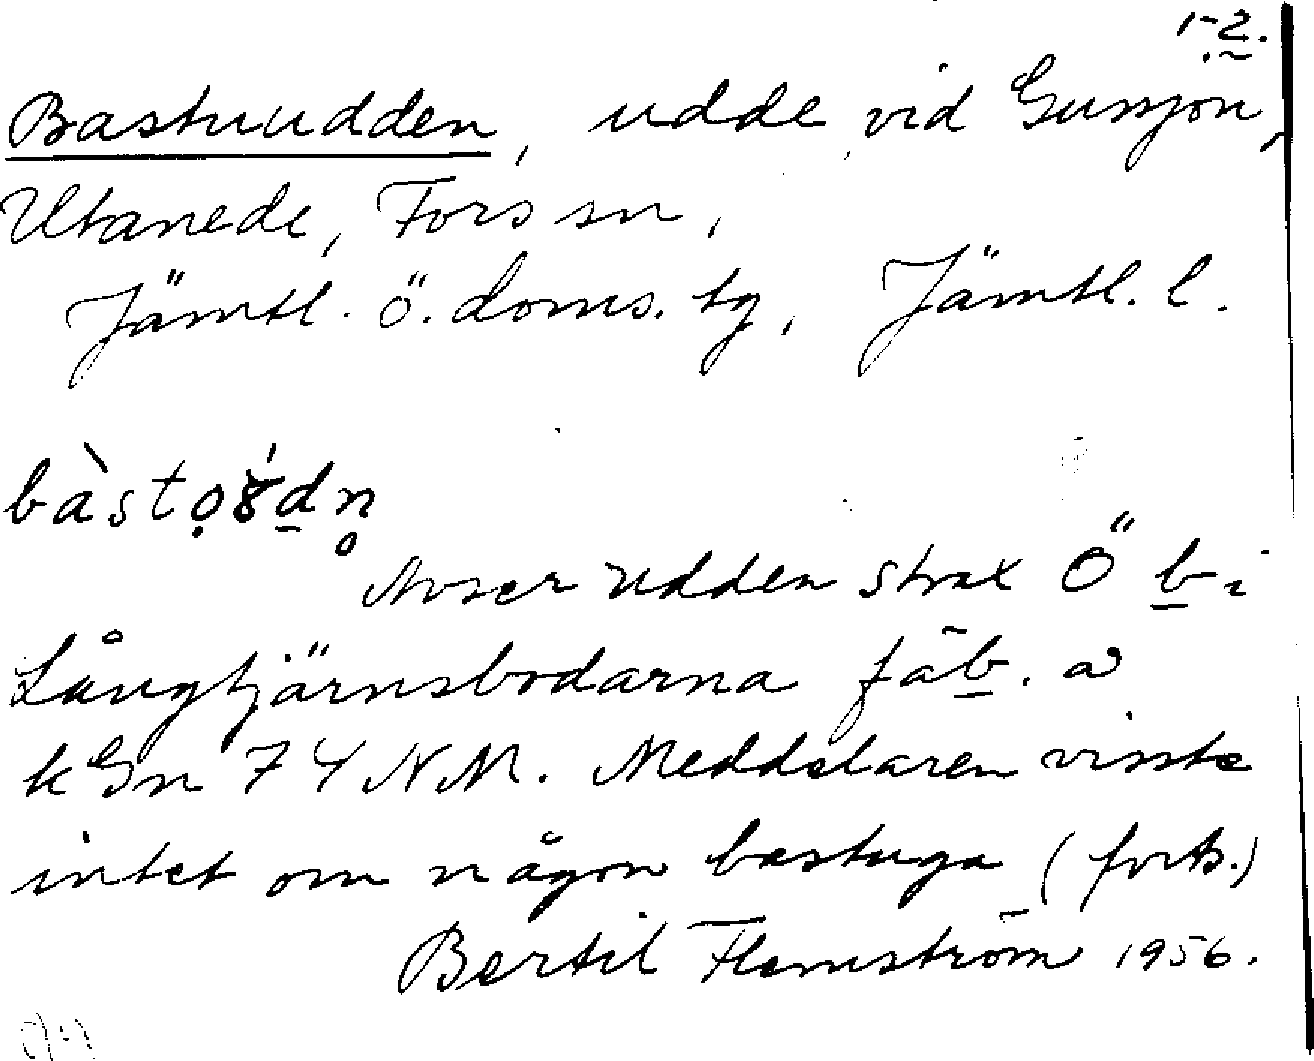 1-2.
Bastuudden, udde vid Gussjön,
Utanede, Fors sn,
Jämtl. ö. doms. tg, Jämtl. l.
udden strax Ö b i
Långtjärnsbodarna fäb. a
74 NM. Meddelaren visste
intet om någon bastuga (forts.)
Bertil Flemström 1956.